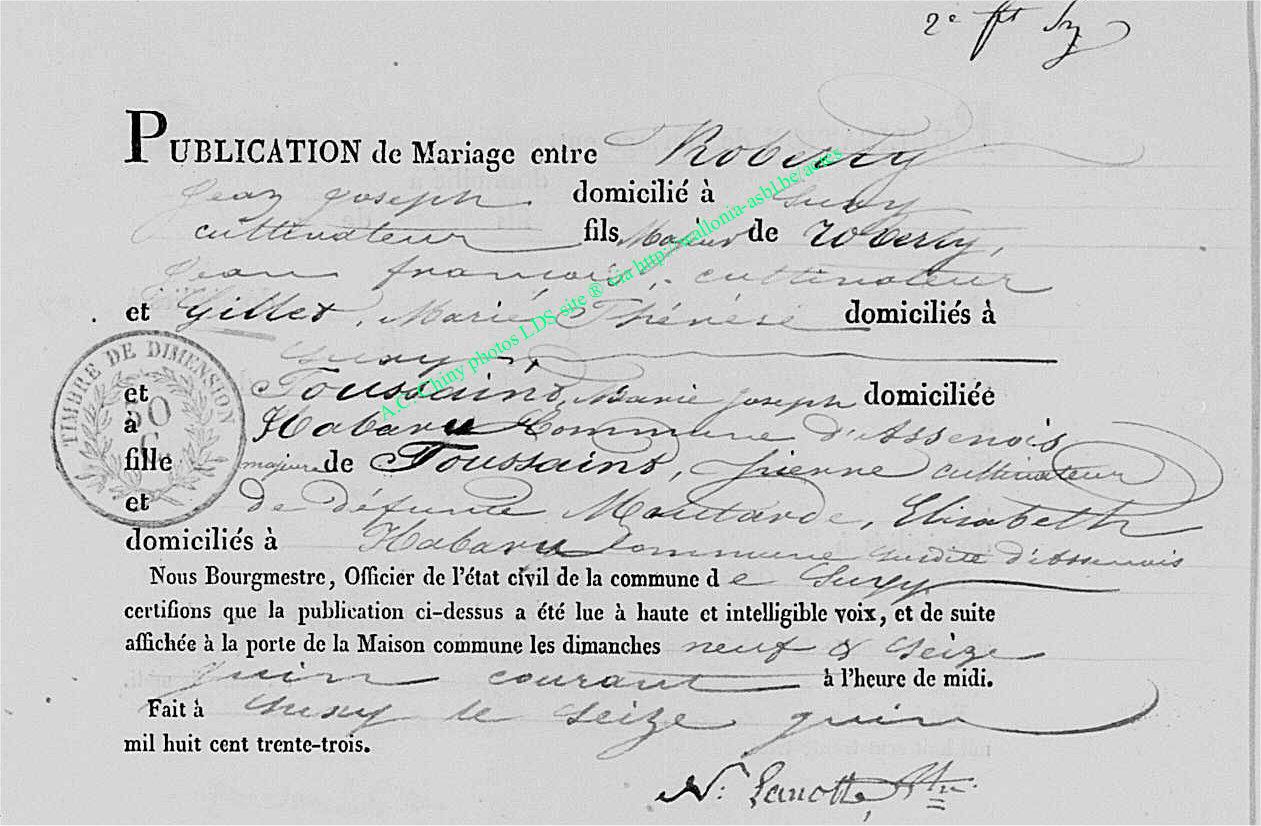 2e
PUBLICATION de Mariage entre Roberty
Jean Joseph. domicilié à Suxy
cultivateur fils Majeur de Roberty,
Jean françois, cultivateur
et Gillet, Marie Thérèse domiciliés à
Suxy,
et Toussaint, Marie Joseph domiciliée
à Habaru Commune d'Assenois
fille majeure de Toussaint, pierre cultivateur
et de défunte Moutarde, Elisabeth
domiciliés à Habaru Commune susdite d'Assenois
Nous Bourgmestre, Officier de l'état civil de la commune de Suxy
certifions que la publication ci-dessus a été lue à haute et intelligible voix, et de suite
affichée à la porte de la Maison commune les dimanches neuf & Seize
juin courant à l'heure de midi.
Fait à Suxy le Seize juin
mil huit cent trente-trois.
N. Lanotte
TIMBRE DE DIMENSION
50
C
A.C. Chiny photos LDS site ® via http://wallonia-asbl.be/actes